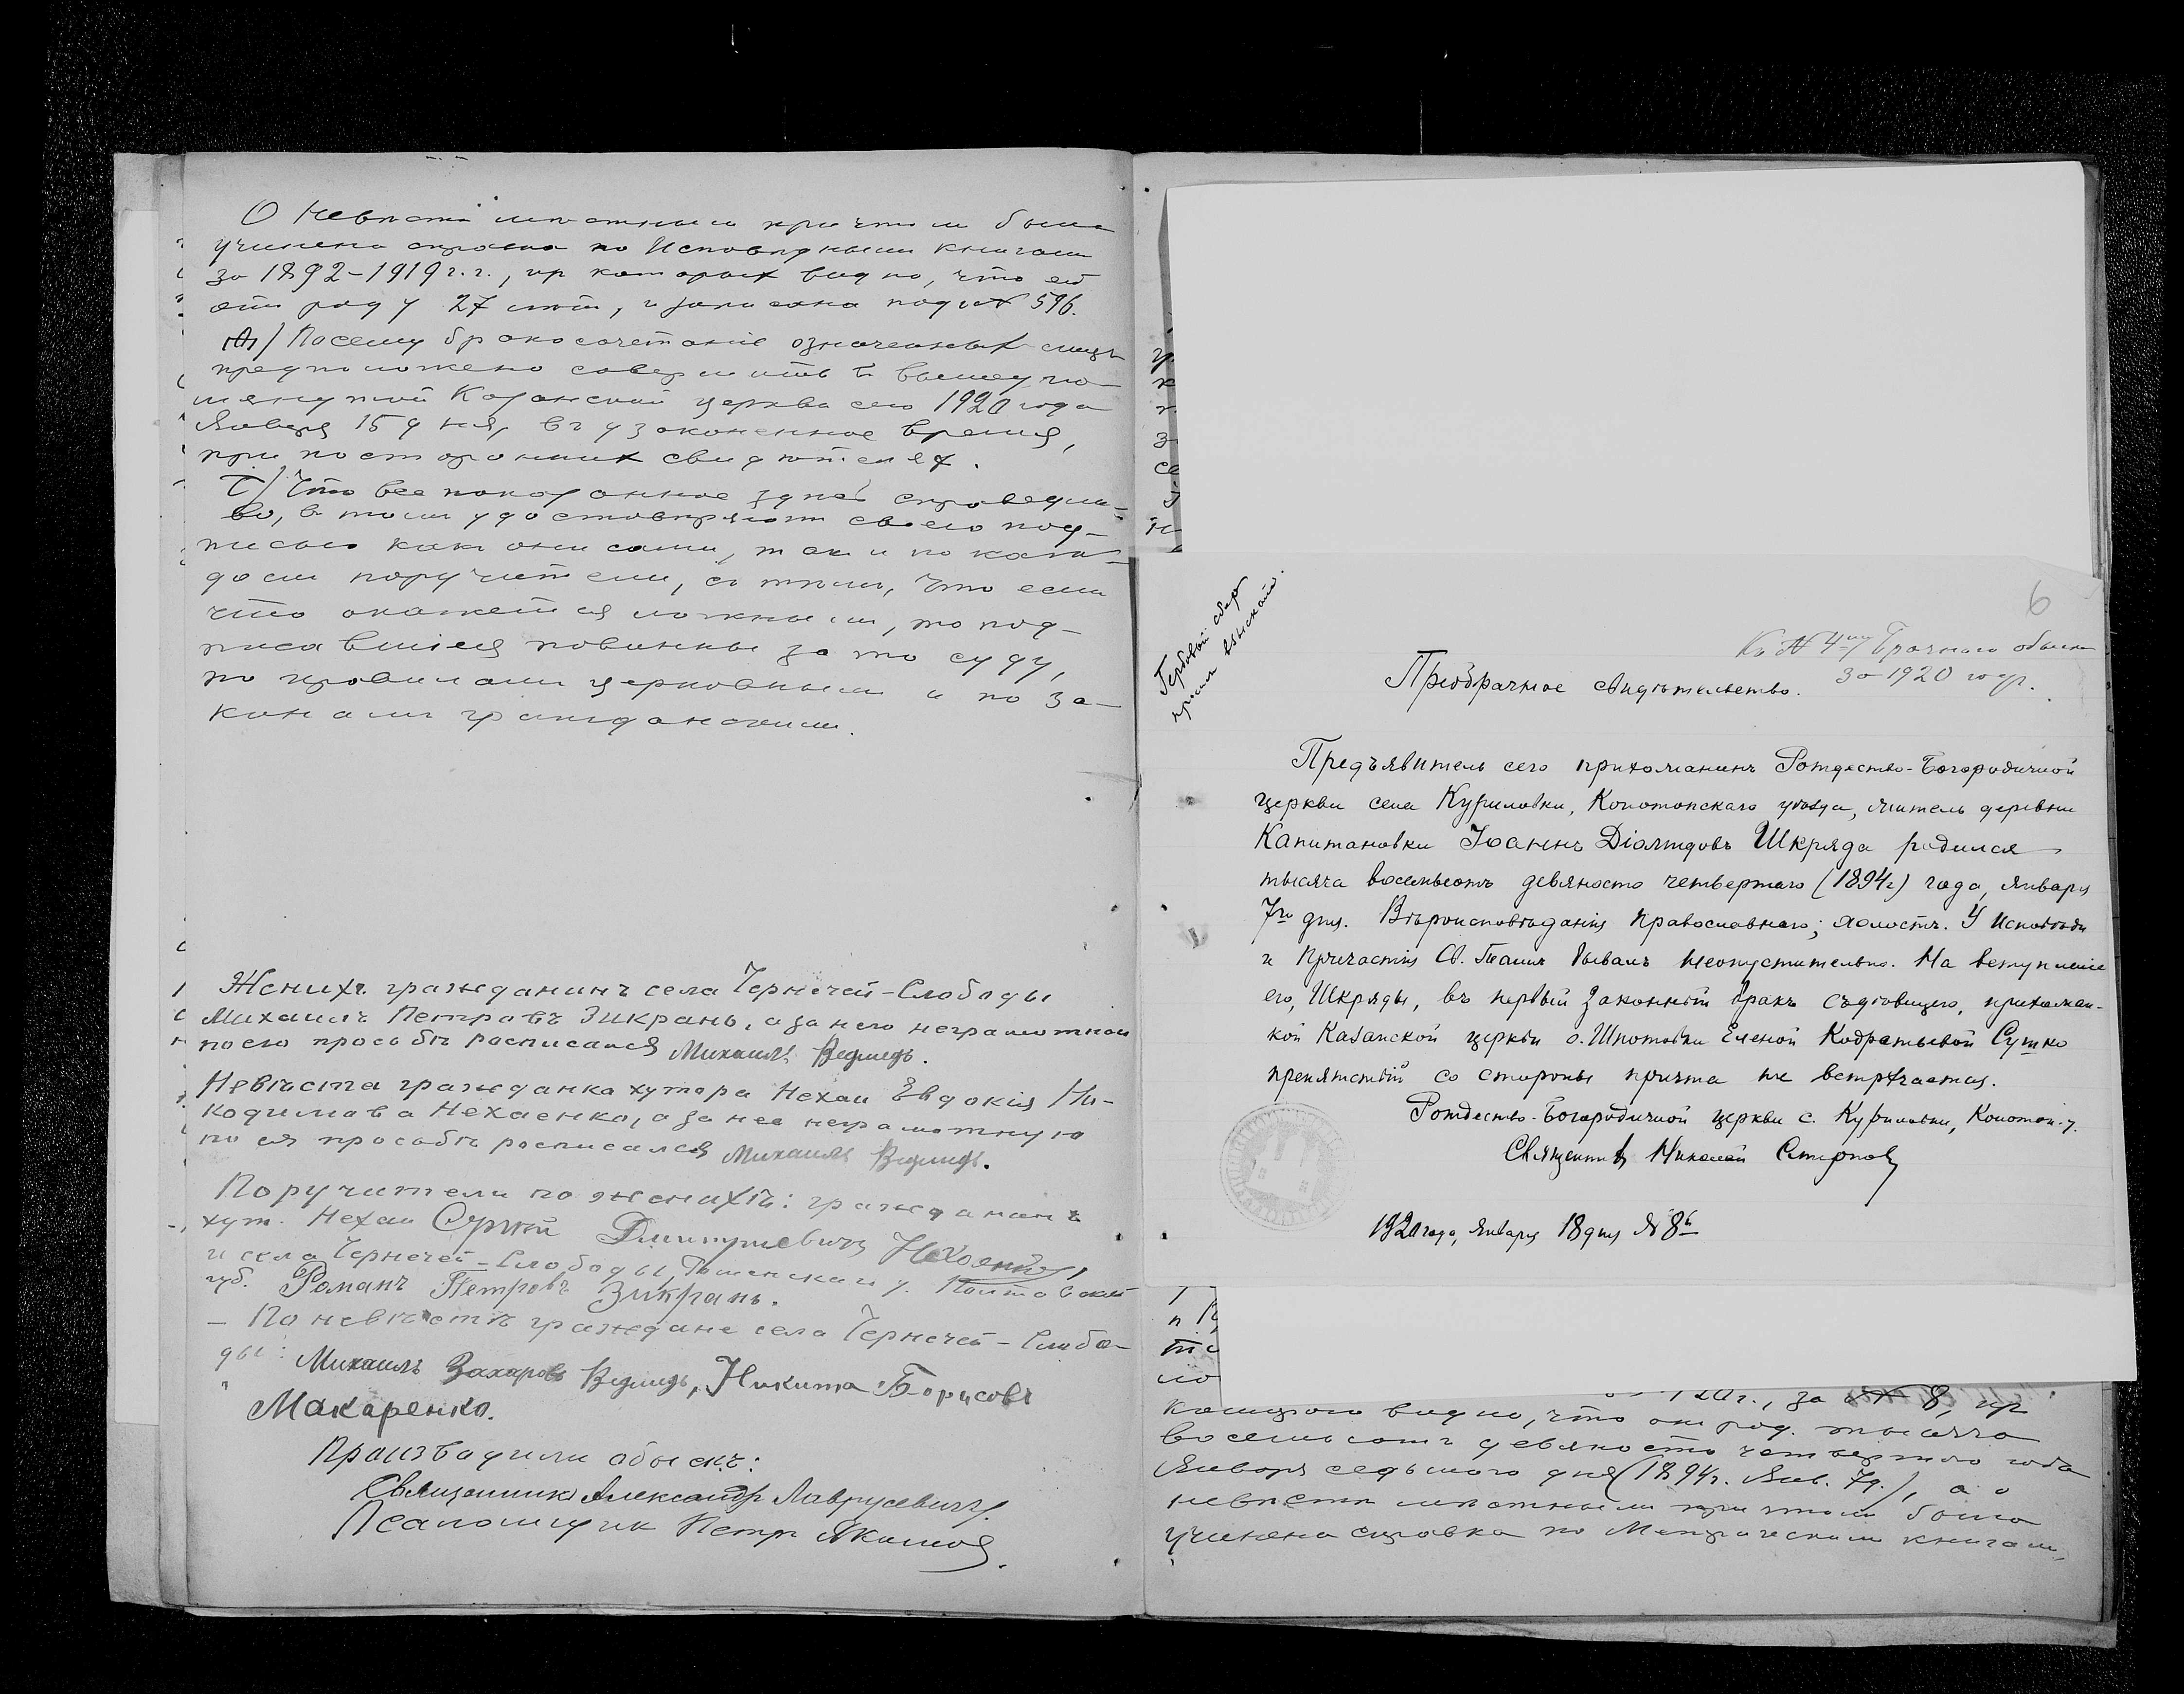 О невѣстѣ мѣстнымъ причтомъ была
учинена справка по Исповѣднымъ книгамъ
за 1892-1919 г.г., изъ которыхъ видно, что ей
отъ роду 27 лѣтъ, и записана подъ № 596.
Посему бракосочетаніе означенныхъ лицъ
предположено совершить въ вышеупо-
мянутой Казанской церкви сего 1920 года
Января 15 дня, въ узаконенное время,
при постороннихъ свидѣтеляхъ.
Что все показанное здѣсь справедли-
во, въ томъ удостовѣряютъ своею под-
писью какъ они сами, такъ и по каж-
домъ поручители, съ тѣмъ, что если
что окажется ложнымъ, то под-
писавшіеся повинны за то суду,
по правиламъ церковнымъ и по за-
конамъ гражданскимъ.
Женихъ гражданинъ села Чернечей-Слободы
Михаилъ Петровъ Зикрань, а за него неграмотнаго
по его просьбѣ росписался Михаилъ Ведмедь.
Невѣста гражданка хутора Нехаи Евдокія Ни-
кодимова Нехаенко, а за нее неграмотную
по ея просьбѣ росписался Михаилъ Ведмедь.
Поручители по женихѣ: гражданинъ
хут. Нехаи Сергѣй Дмитриевичъ Нехаенко,
и села Чернечей-Слободы, у. Полтавской
губ. Романъ Петровъ Зикрань.
- По невѣстѣ граждане села Чернечей-Слобо-
ды: Михаилъ Захаровъ Ведмедь, Никита Борисовъ
Макаренко.
Производили обыскъ:
Священникъ Александръ Лаврусевичъ.
Псаломщикъ Петръ Якимов.
Гербовый сборъ
взысканъ.
6
Къ № 4му Брачнаго обыска
за 1920 годъ.
Предбрачное свидѣтельство.
Предъявитель сего прихожанинъ Рождество-Богородичной
церкви села Куриловки, Конотопскаго уѣзда, житель деревни
Капитановки Іоаннъ Діомидовъ Шкряда родился
тысяча восемьсотъ девяносто четвертаго (1894г) года, января
7го дня. Вѣроисповѣданія православнаго; холостъ. У Исповѣди
и Причастія Св. Таинъ бывалъ неопустительно. На вступленіе
его, Шкряды, въ первый законный бракъ съ дѣвицею, прихожан-
кой Казанской церкви с. Шпотовки Еленой Кодратьевой Сутко
препятствій со стороны причта не встрѣчается.
Рождество-Богородичной церкви с. Куриловки, Конотоп. у.
Священникъ Николай Смирновъ
1920 года, января 18 дня № 8й
г., за № 8, изъ
котораго видно, что онъ род. тысяча
восемьсотъ девяносто четвертаго года
Января седьмого дня (1894г. Янв. 7д.), а о
невѣстѣ мѣстнымъ причтомъ была
учинена справка по Метрическимъ книгамъ,